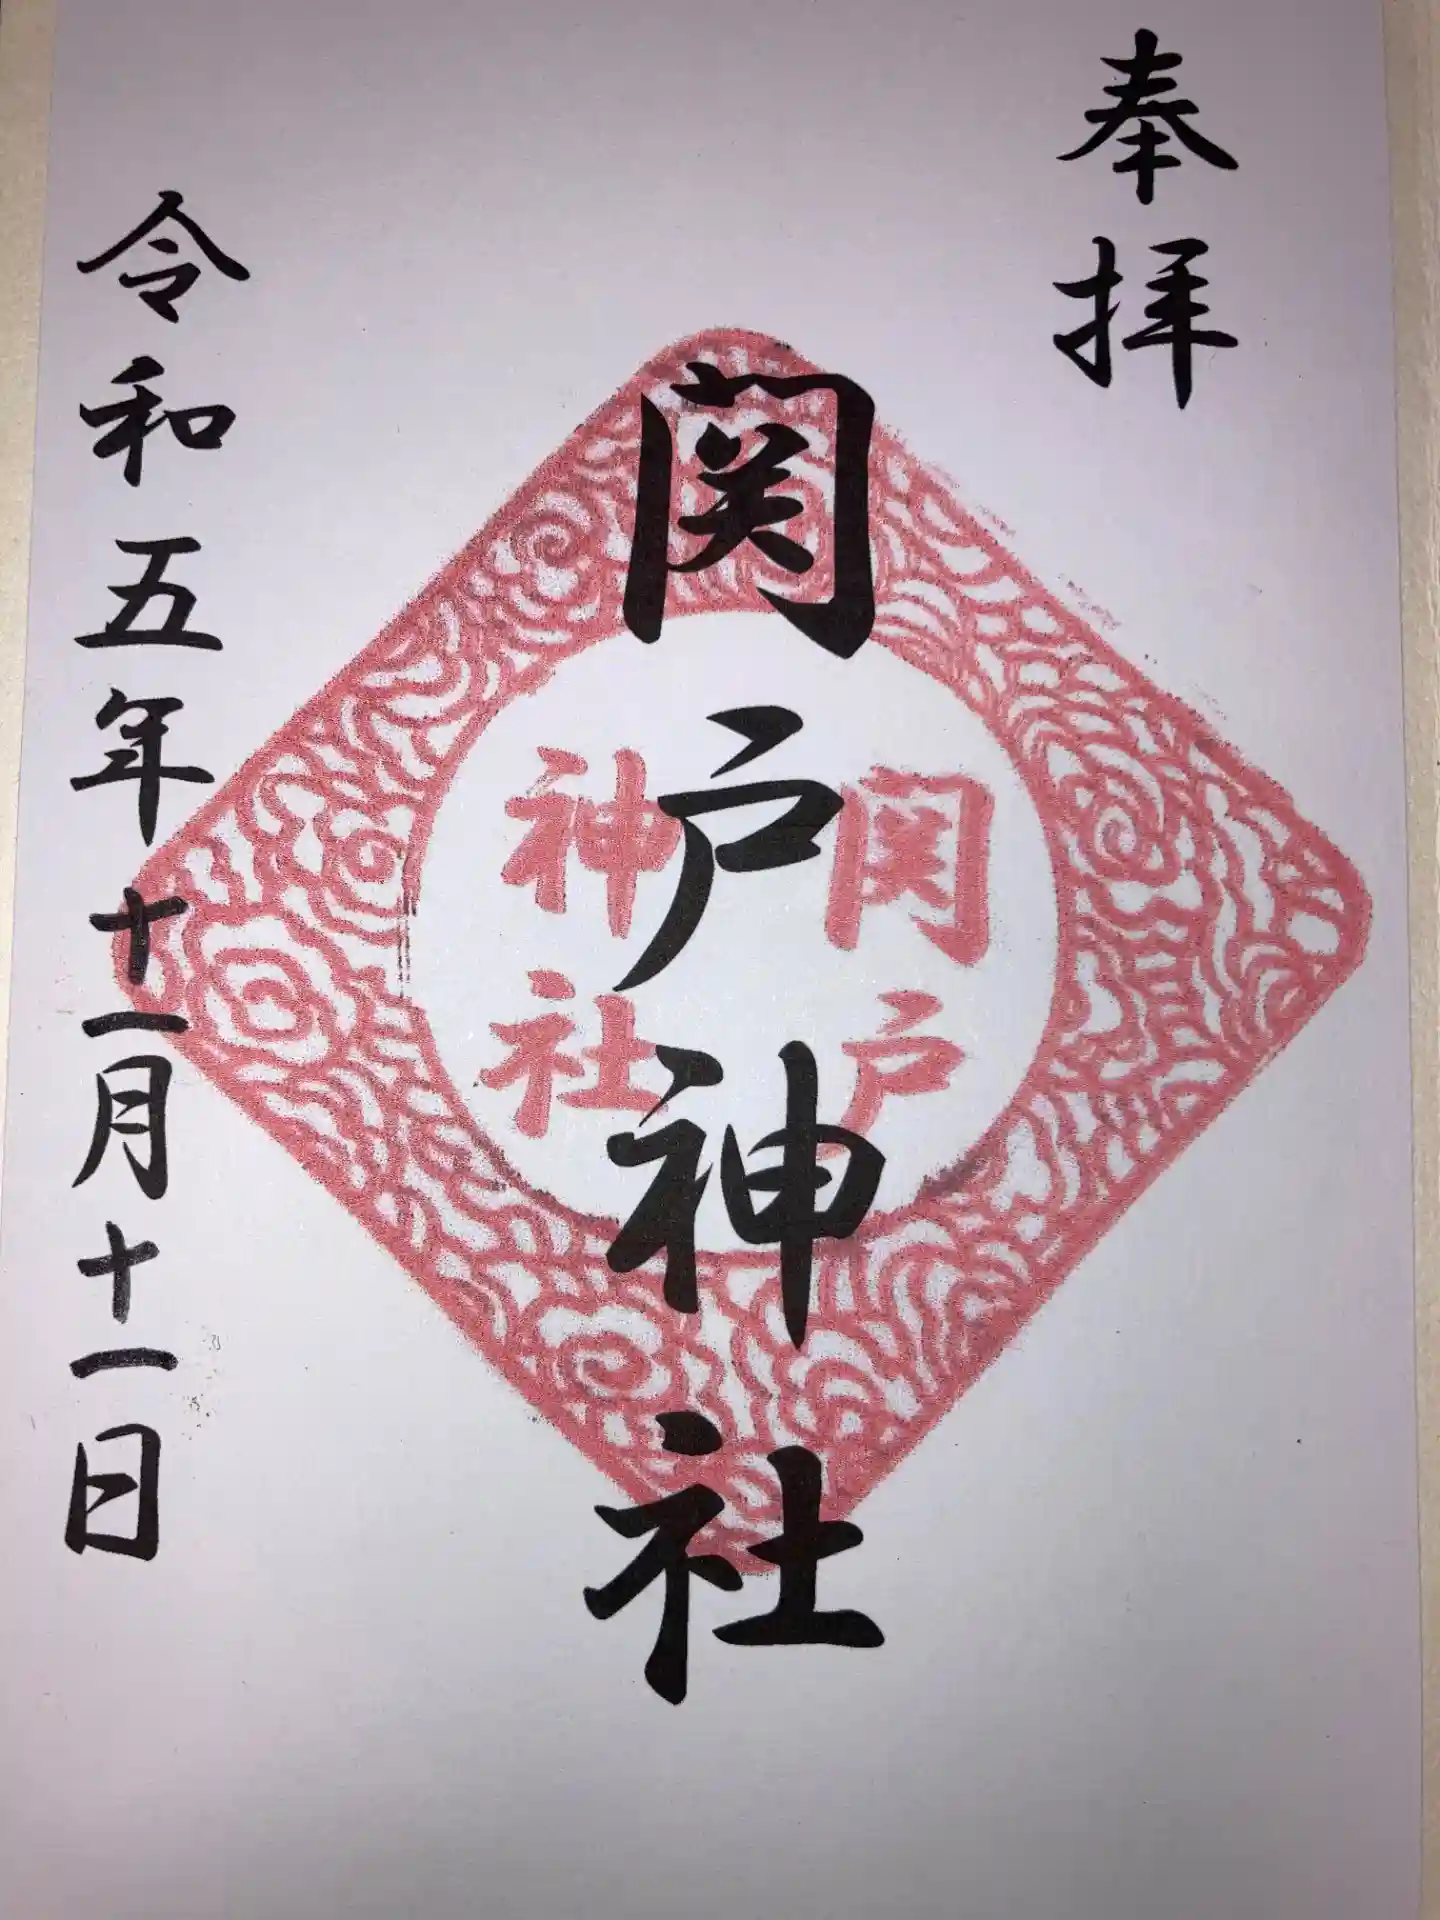 奉拝
関戸神社
関戸
神社
令和五年十一月十一日